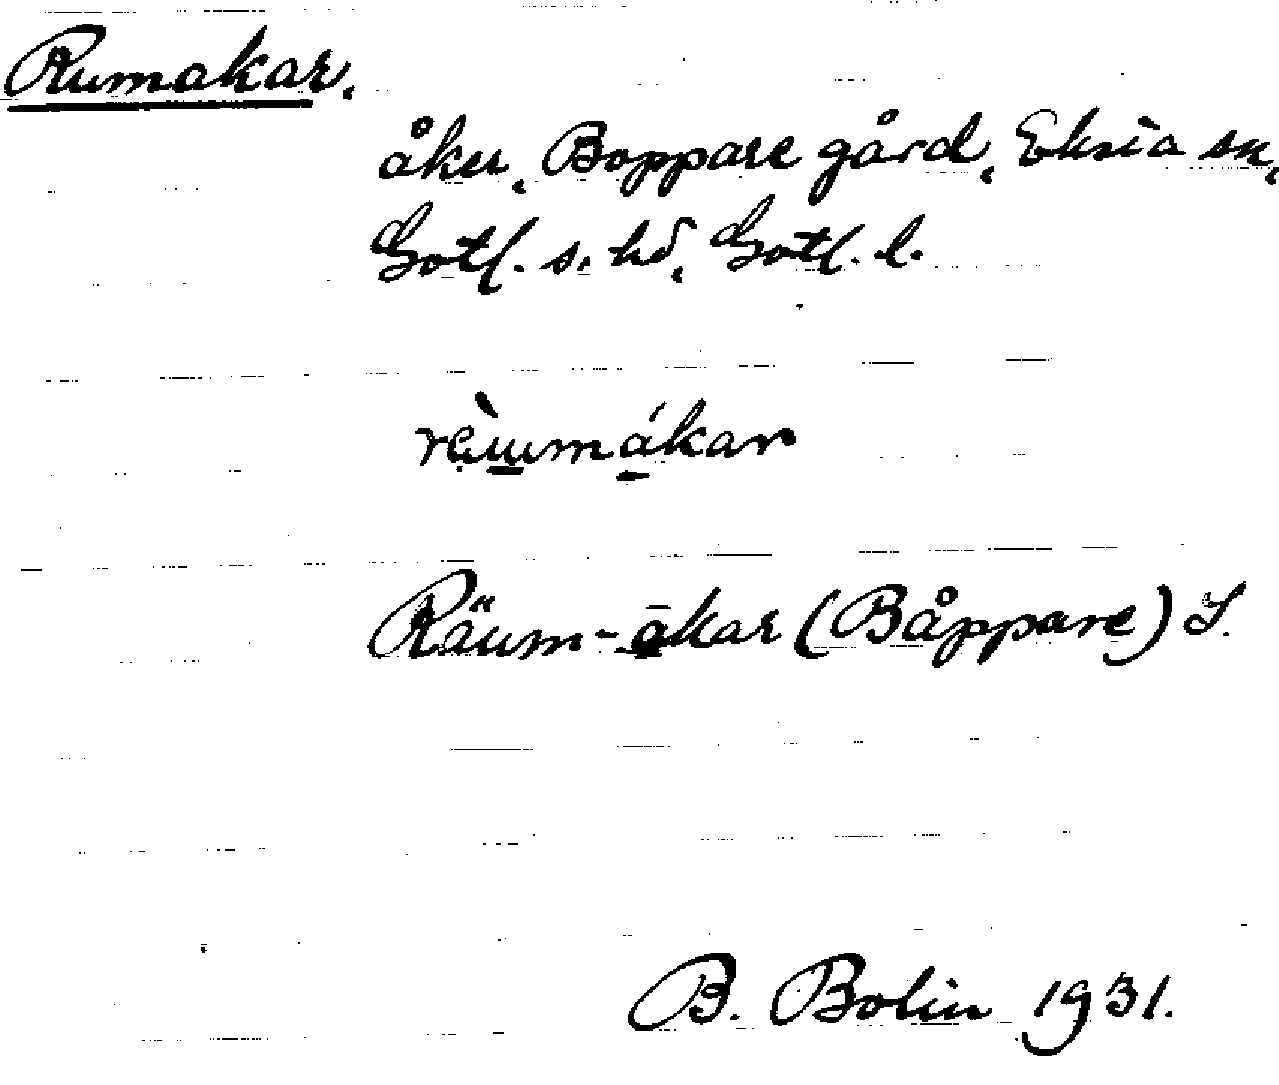 Rumakar.
åker, Boppare gård, Eksta sn,
Gotl. s. hd, Gotl. l.
rèumákar
Räum-ākar (Båppare) S.
B. Bolin 1931.